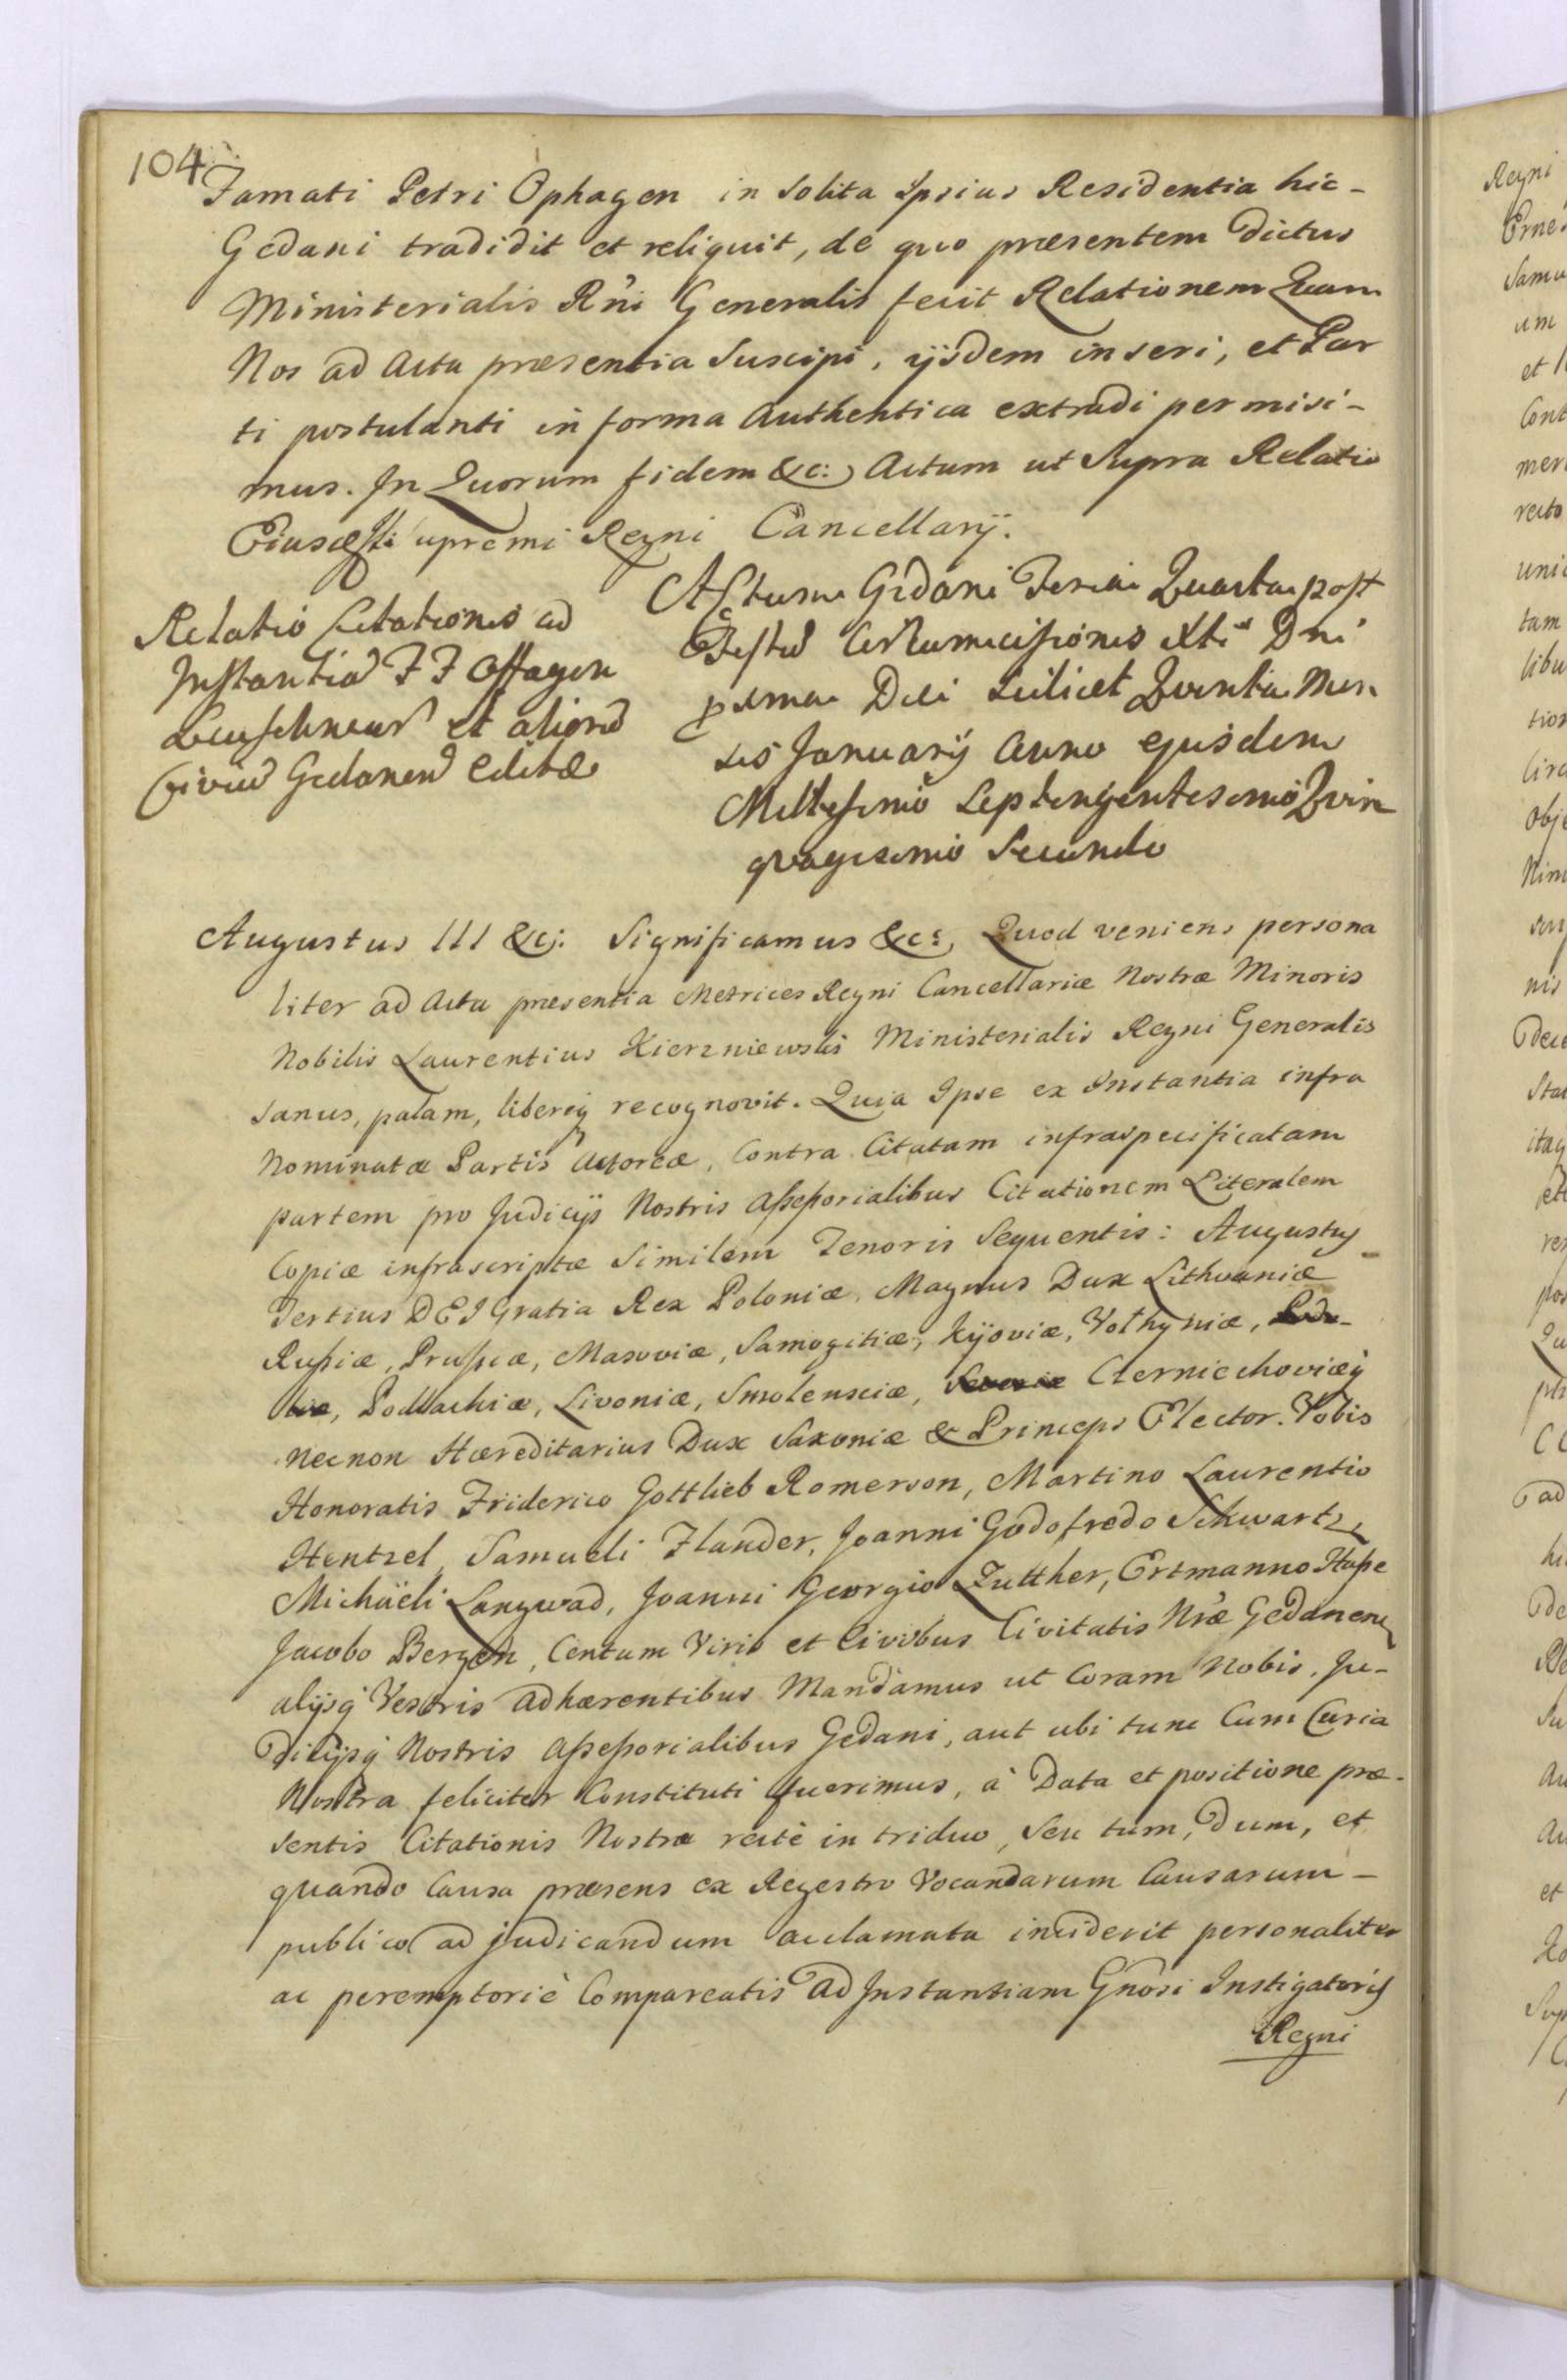 104
Famati Petri Ophagen in solita Ipsius Residentia hic-
Gedani tradidit et reliquit, de quo præsentem dictus
Ministerialis R'ni Generalis fecit Relationem Quam
Nos ad Acta præsentia Suscipi, ijsdem inseri, et Par
ti postulanti in forma Authentica extradi permisi-
mus. In Quorum fidem &c: Actum ut Supra Relatio
Eiusdem Supremi Regni Cancellarij.
Relatio Citationis ad
Instantiã F F Offagen
Leuschneur et aliorũ
Civiũ Gedanen Editæ
Actum Gedani Feria Quarta post
Festũ Circumcisionis Xti Dni
pxma Die scilicet Quinta Men
sis Januarij Anno ejusdem
Millesimo Septengentesimo Quin
quagesimo Secundo
Augustus III &c: Significamus &c: Quod veniens persona
liter ad Acta præsentia Metrices Regni Cancellariæ Nostræ Minoris
Nobilis Laurentius Kierzniewski Ministerialis Regni Generalis
sanus, palam, libereq recognovit. Quia Ipse ex Instantia infra
Nominatæ Partis Actoreæ, Contra Citatam infraspecificatam
partem pro Judicijs Nostris Assessorialibus Citationem Literalem
Copiæ infrascriptæ Similem Tenoris Sequentis: Augustus
Tertius DEI Gratia Rex Poloniæ, Magnus Dux Lithvaniæ
Russiæ, Prussiæ, Masoviæ, Samogitiæ, Kijoviæ, Volhyniæ, Podo-
liæ, Podlachiæ, Livoniæ, Smolensciæ, Severiæ Czerniechoviæq
necnon Hæreditarius Dux Saxoniæ & Princeps Elector. Vobis
Honoratis Friderico Gottlieb Romerson, Martino Laurentio
Hentzel, Samueli Flander, Joanni Godofredo Schwartz,
Michaëli Langwad, Joanni Georgio Zutther, Ertmanno Hasse
Jacobo Bergen, Centum Viris et Civibus Civitatis Nræ Gedanen
alijsq Vestris adhærentibus Mandamus ut Coram Nobis, Ju-
dicijsq Nostris Assessorialibus Gedani, aut ubi tunc Cum Curia
Nostra feliciter Constituti fuerimus, à Data et positione præ-
sentis Citationis Nostræ rectè in triduo, seu tum, dum, et
quando Causa præsens ex Regestro Vocandarum Causarum-
publico ad judicandum acclamata inciderit personaliter
ac peremptoriè Compareatis ad Instantiam Gnosi Instigatoris
Regni